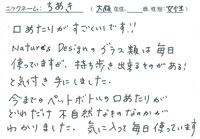 ニックネーム: ちあき (大阪 在住. 歳. 性別: 女性)
口あたりがすごくいいです!!
Nature's Designのグラス類は毎日
使っていますが、持ち歩き出来るものがある!
と気付き手にしました。
今までのペットボトルの口あたりが
どれだけ不自然なものなのかが
わかりました。気に入って毎日使ってます